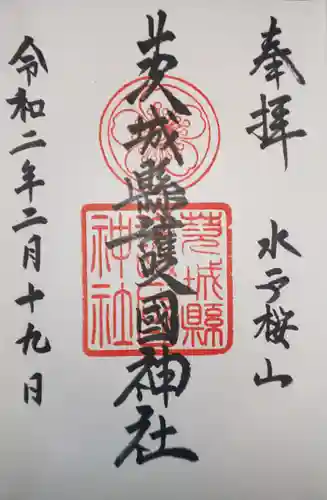 奉拝
水戸桜山
茨城縣護國神社
令和二年二月十九日
茨城縣
護國
神社